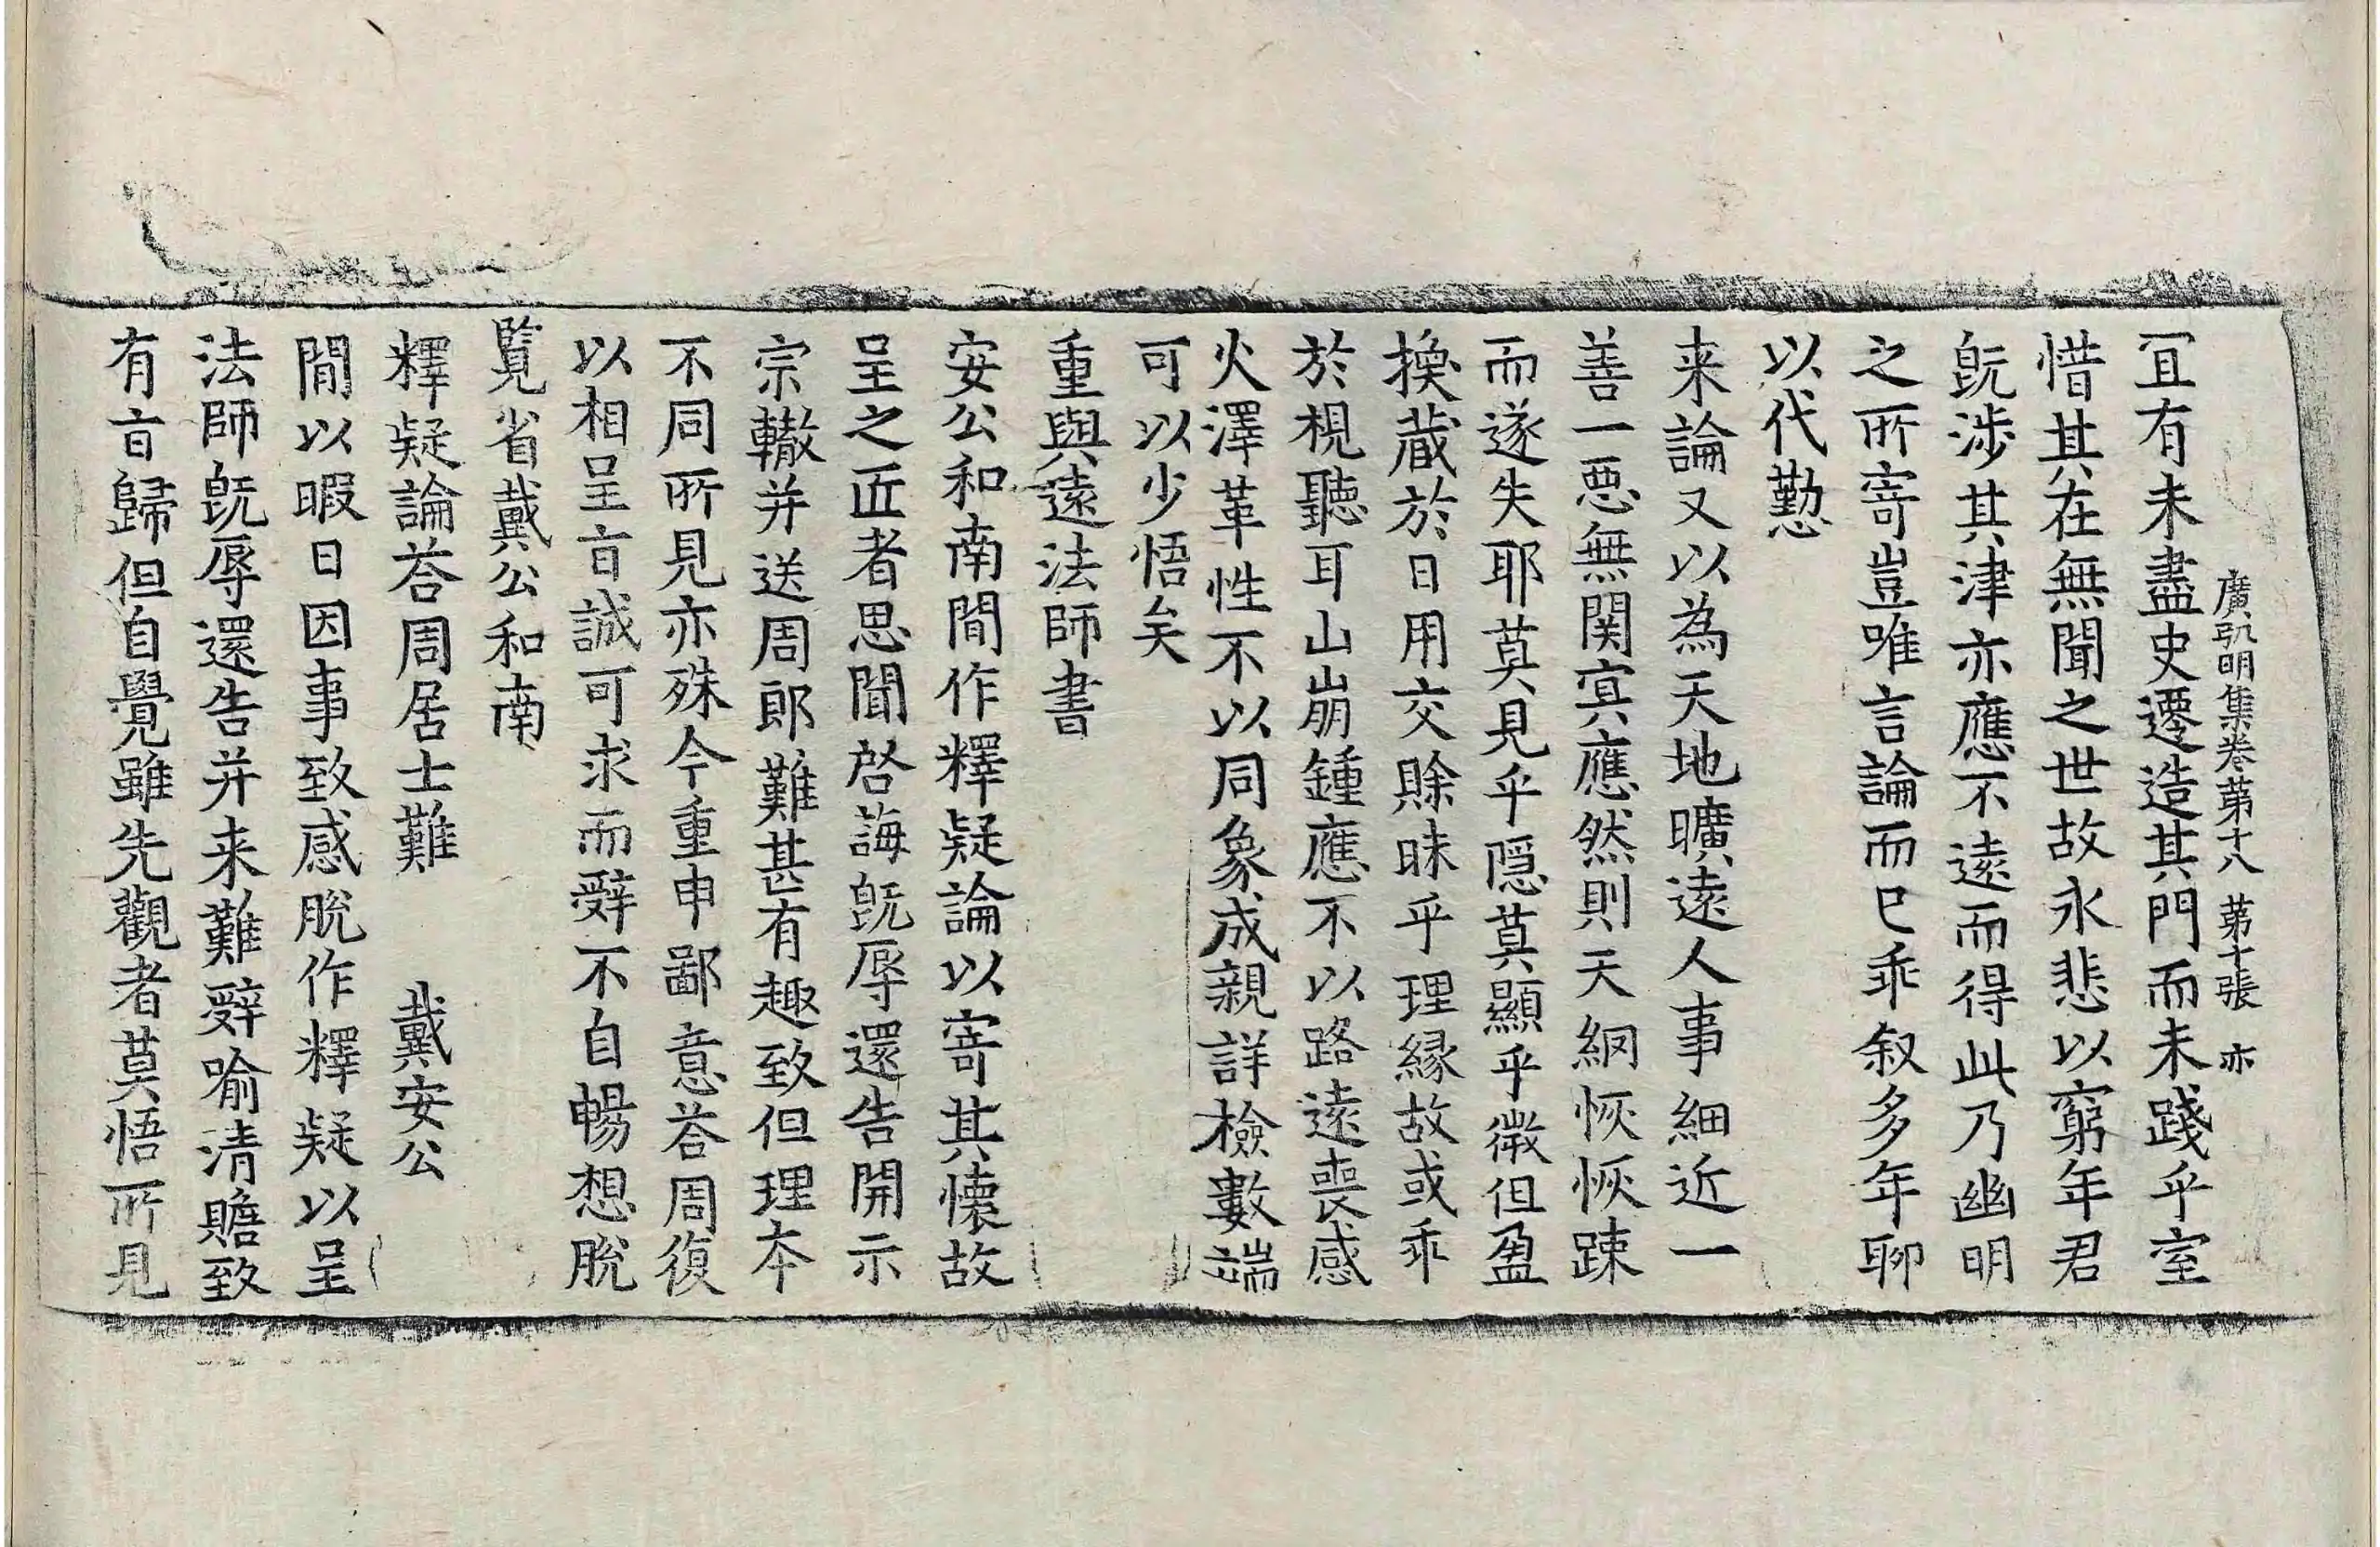 廣弘明集卷第十八 第十張 亦
冝有未盡史遷造其門而未踐乎室
惜其在無聞之世故永悲以窮年君
旣涉其津亦應不遠而得此乃幽明
之所寄豈唯言論而已乖叙多年聊
以代懃
来論又以為天地曠遠人事細近一
善一惡無関㝠應然則天網恢恢踈
而遂失耶莫見乎隱莫顯乎微但盈
換蔵於日用交賒昧乎理緣故或乖
於視聽耳山崩鍾應不以路遠喪感
火澤革性不以同象成親詳檢數端
可以少悟矣
重與遠法師書
安公和南間作釋疑論以寄其懷故
呈之匠者思聞啓誨旣辱還告開示
宗轍并送周郎難甚有趣致但理本
不同所見亦殊今重申鄙意荅周復
以相呈㫖誠可求而辭不自暢想脫
覽省戴公和南
釋疑論荅周居士難 戴安公
間以暇日因事致感脫作釋疑以呈
法師旣辱還告并来難辭喻清贍致
有㫖歸但自覺雖先觀者莫悟所見